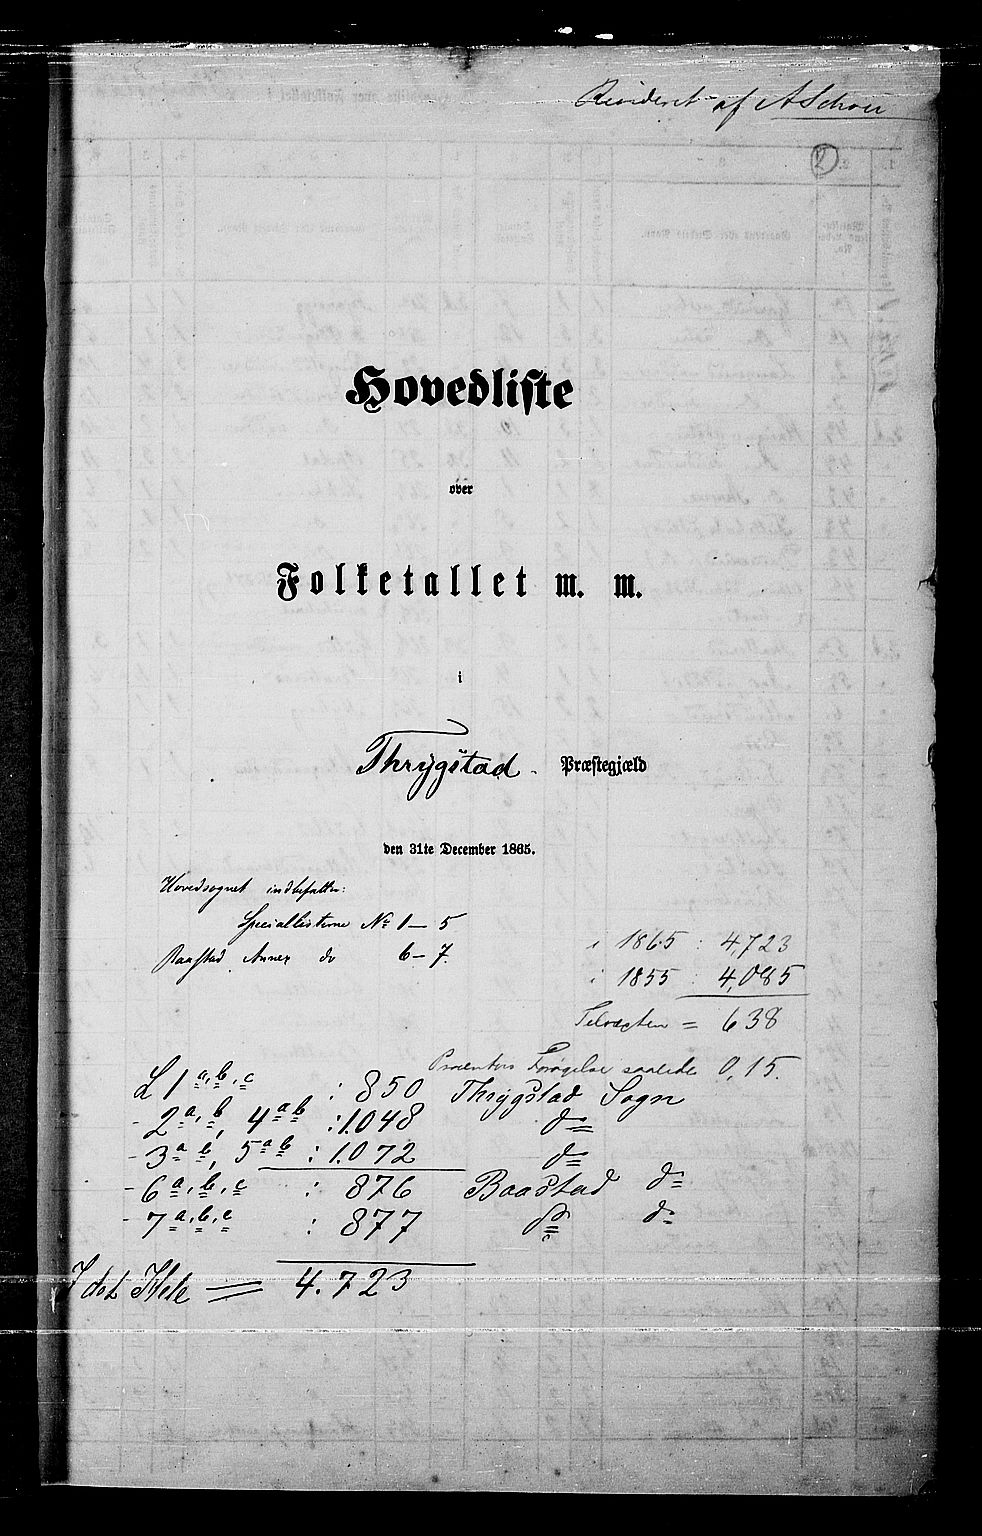 Revideret af ASchou
2
Hovedliste
over
Folketallet m. m.
i
Thrygstad Præstegjæld
den 31te December 1865.
Hovedsognet indbefatter:
Speciallisterne No 1 – 5
Baastad Annex do 6 – 7.
i 1865 : 4,723
i 1855 : 4,085
Tilvæxten = 638
Procentvis Forøgelse saaledes 0,15.
L 1 a, b, c : 850 Thrygstad Sogn
- 2 a, b, 4 a b : 1.048 do
- 3 a b, 5 a b : 1.072 do
- 6 a, b, c : 876 Baastad do
- 7 a, b, c : 877 do do
I det Hele = 4.723